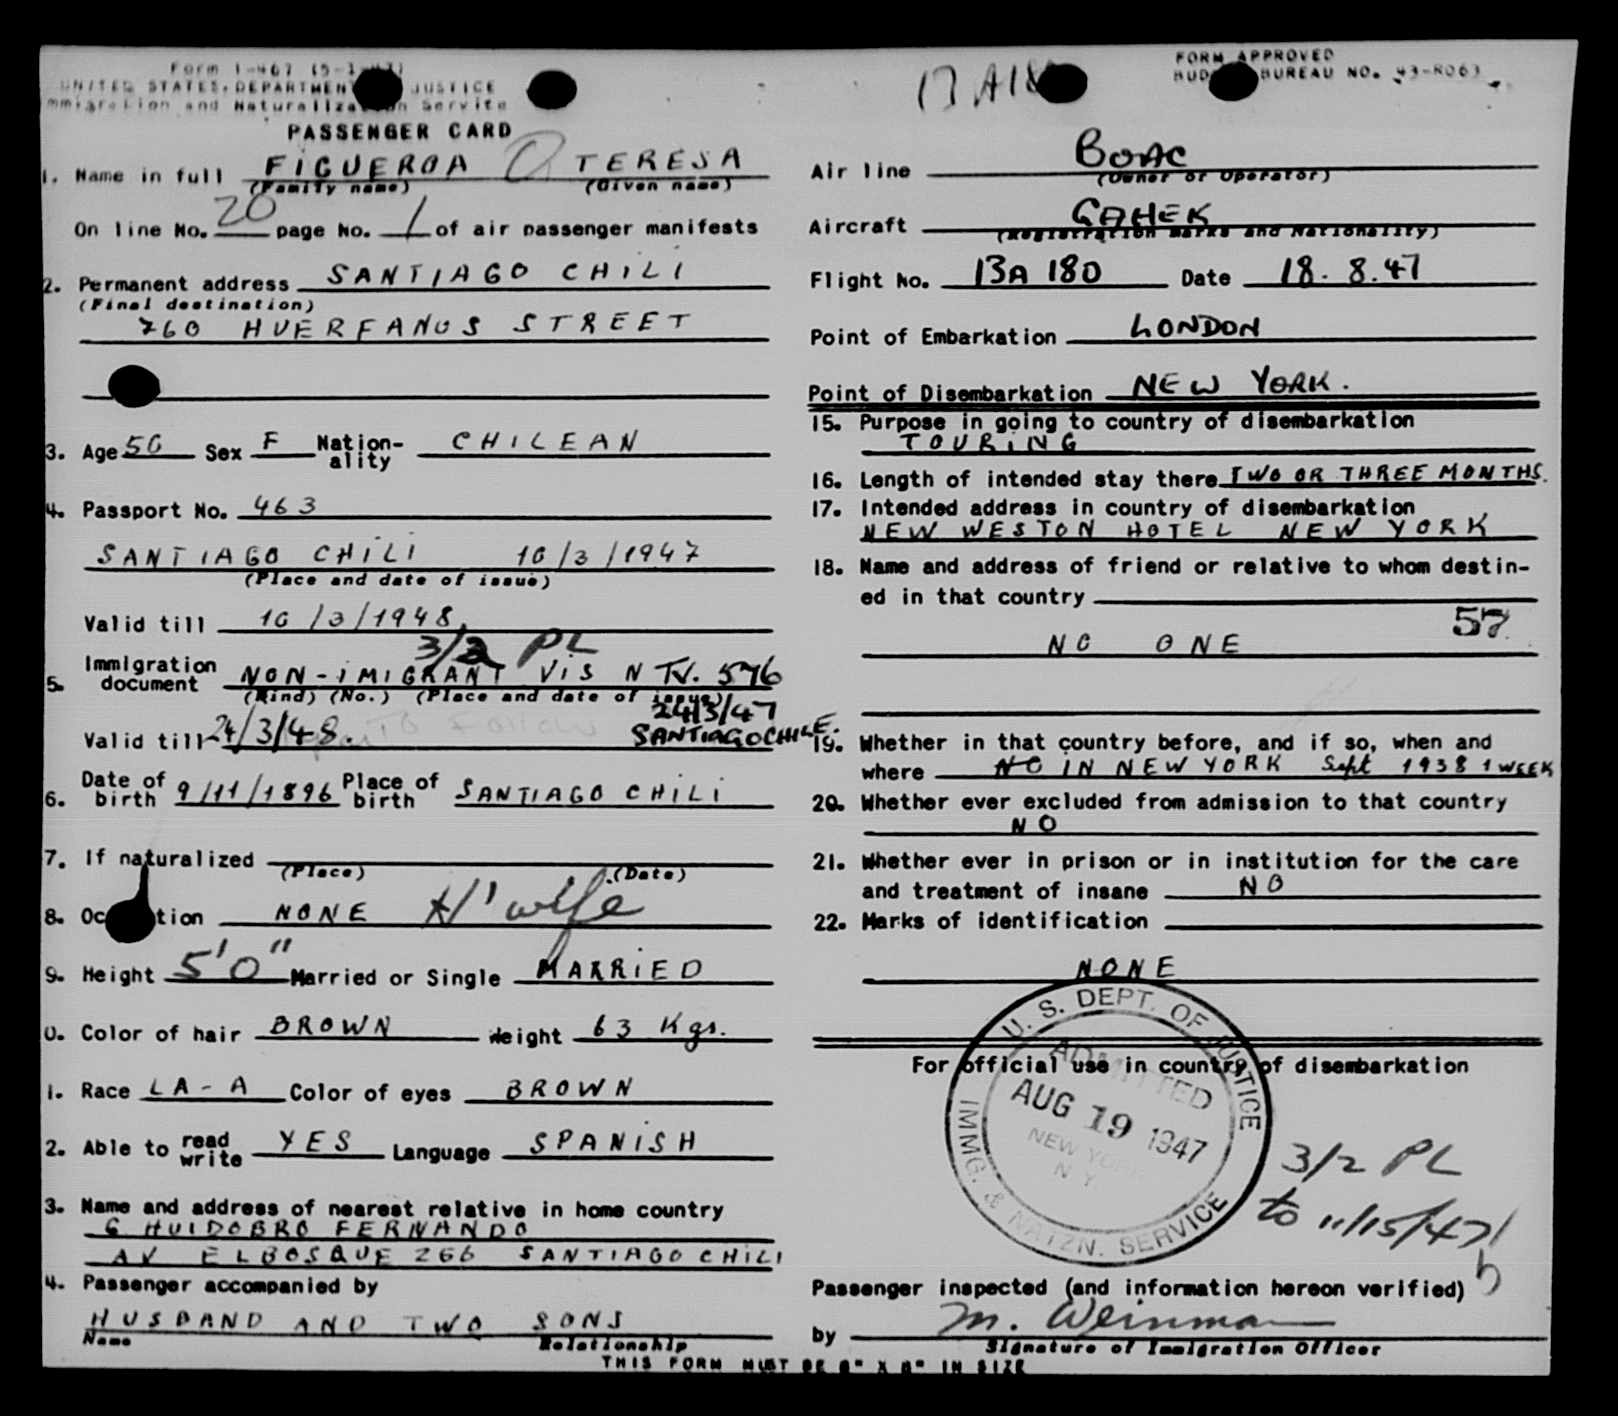 Form I-467 (5-1-47)
UNITED STATES DEPARTMENT JUSTICE
Immigration and Naturalization Service
PASSENGER CARD
1. Name in full FIGUEROA TERESA
(Family name) (Given name)
On line No. 20 page No. 1 of air passenger manifests
2. Permanent address SANTIAGO CHILI
(Final destination)
760 HUERFANOS STREET
3. Age 50 Sex F Nation-ality CHILEAN
4. Passport No. 463
SANTIAGO CHILI 10/3/1947
(Place and date of issue)
Valid till 10/3/1948
3/2 PL
5. Immigration document NON-IMIGRANT VIS N TV. 576
(Kind) (No.) (Place and date of issue)
24/3/47
Valid till 24/3/48. To Follow SANTIAGO CHILE.
6. Date of birth 9/11/1896 Place of birth SANTIAGO CHILI
7. If naturalized
(Place) (Date)
8. Oc tion NONE H'wife
9. Height 5'0" Married or Single MARRIED
0. Color of hair BROWN Weight 63 Kgs.
1. Race LA-A Color of eyes BROWN
2. Able to read write YES Language SPANISH
3. Name and address of nearest relative in home country
G HUIDOBRO FERNANDO
AV ELBOSQUE 266 SANTIAGO CHILI
4. Passenger accompanied by
HUSBAND AND TWO SONS
Name Relationship
THIS FORM MUST BE 8" X 8" IN SIZE
FORM APPROVED
BUD BUREAU NO. 43-R063
13 A18
Air line BOAC
(Owner or Operator)
Aircraft GAHEK
(Registration marks and Nationality)
Flight No. 13A 180 Date 18.8.47
Point of Embarkation LONDON
Point of Disembarkation NEW YORK.
15. Purpose in going to country of disembarkation
TOURING
16. Length of intended stay there TWO OR THREE MONTHS.
17. Intended address in country of disembarkation
NEW WESTON HOTEL NEW YORK
18. Name and address of friend or relative to whom destin-
ed in that country
57
NO ONE
19. Whether in that country before, and if so, when and
where NO IN NEW YORK Sept 1938 1 WEEK
20. Whether ever excluded from admission to that country
NO
21. Whether ever in prison or in institution for the care
and treatment of insane NO
22. Marks of identification
NONE
For official use in country of disembarkation
U. S. DEPT. OF JUSTICE
ADMITTED
AUG 19 1947
NEW YORK
N Y
IMMG. & NATZN. SERVICE
3/2 PL
to 11/15/47
Passenger inspected (and information hereon verified)
by M. Weinman
Signature of Immigration Officer